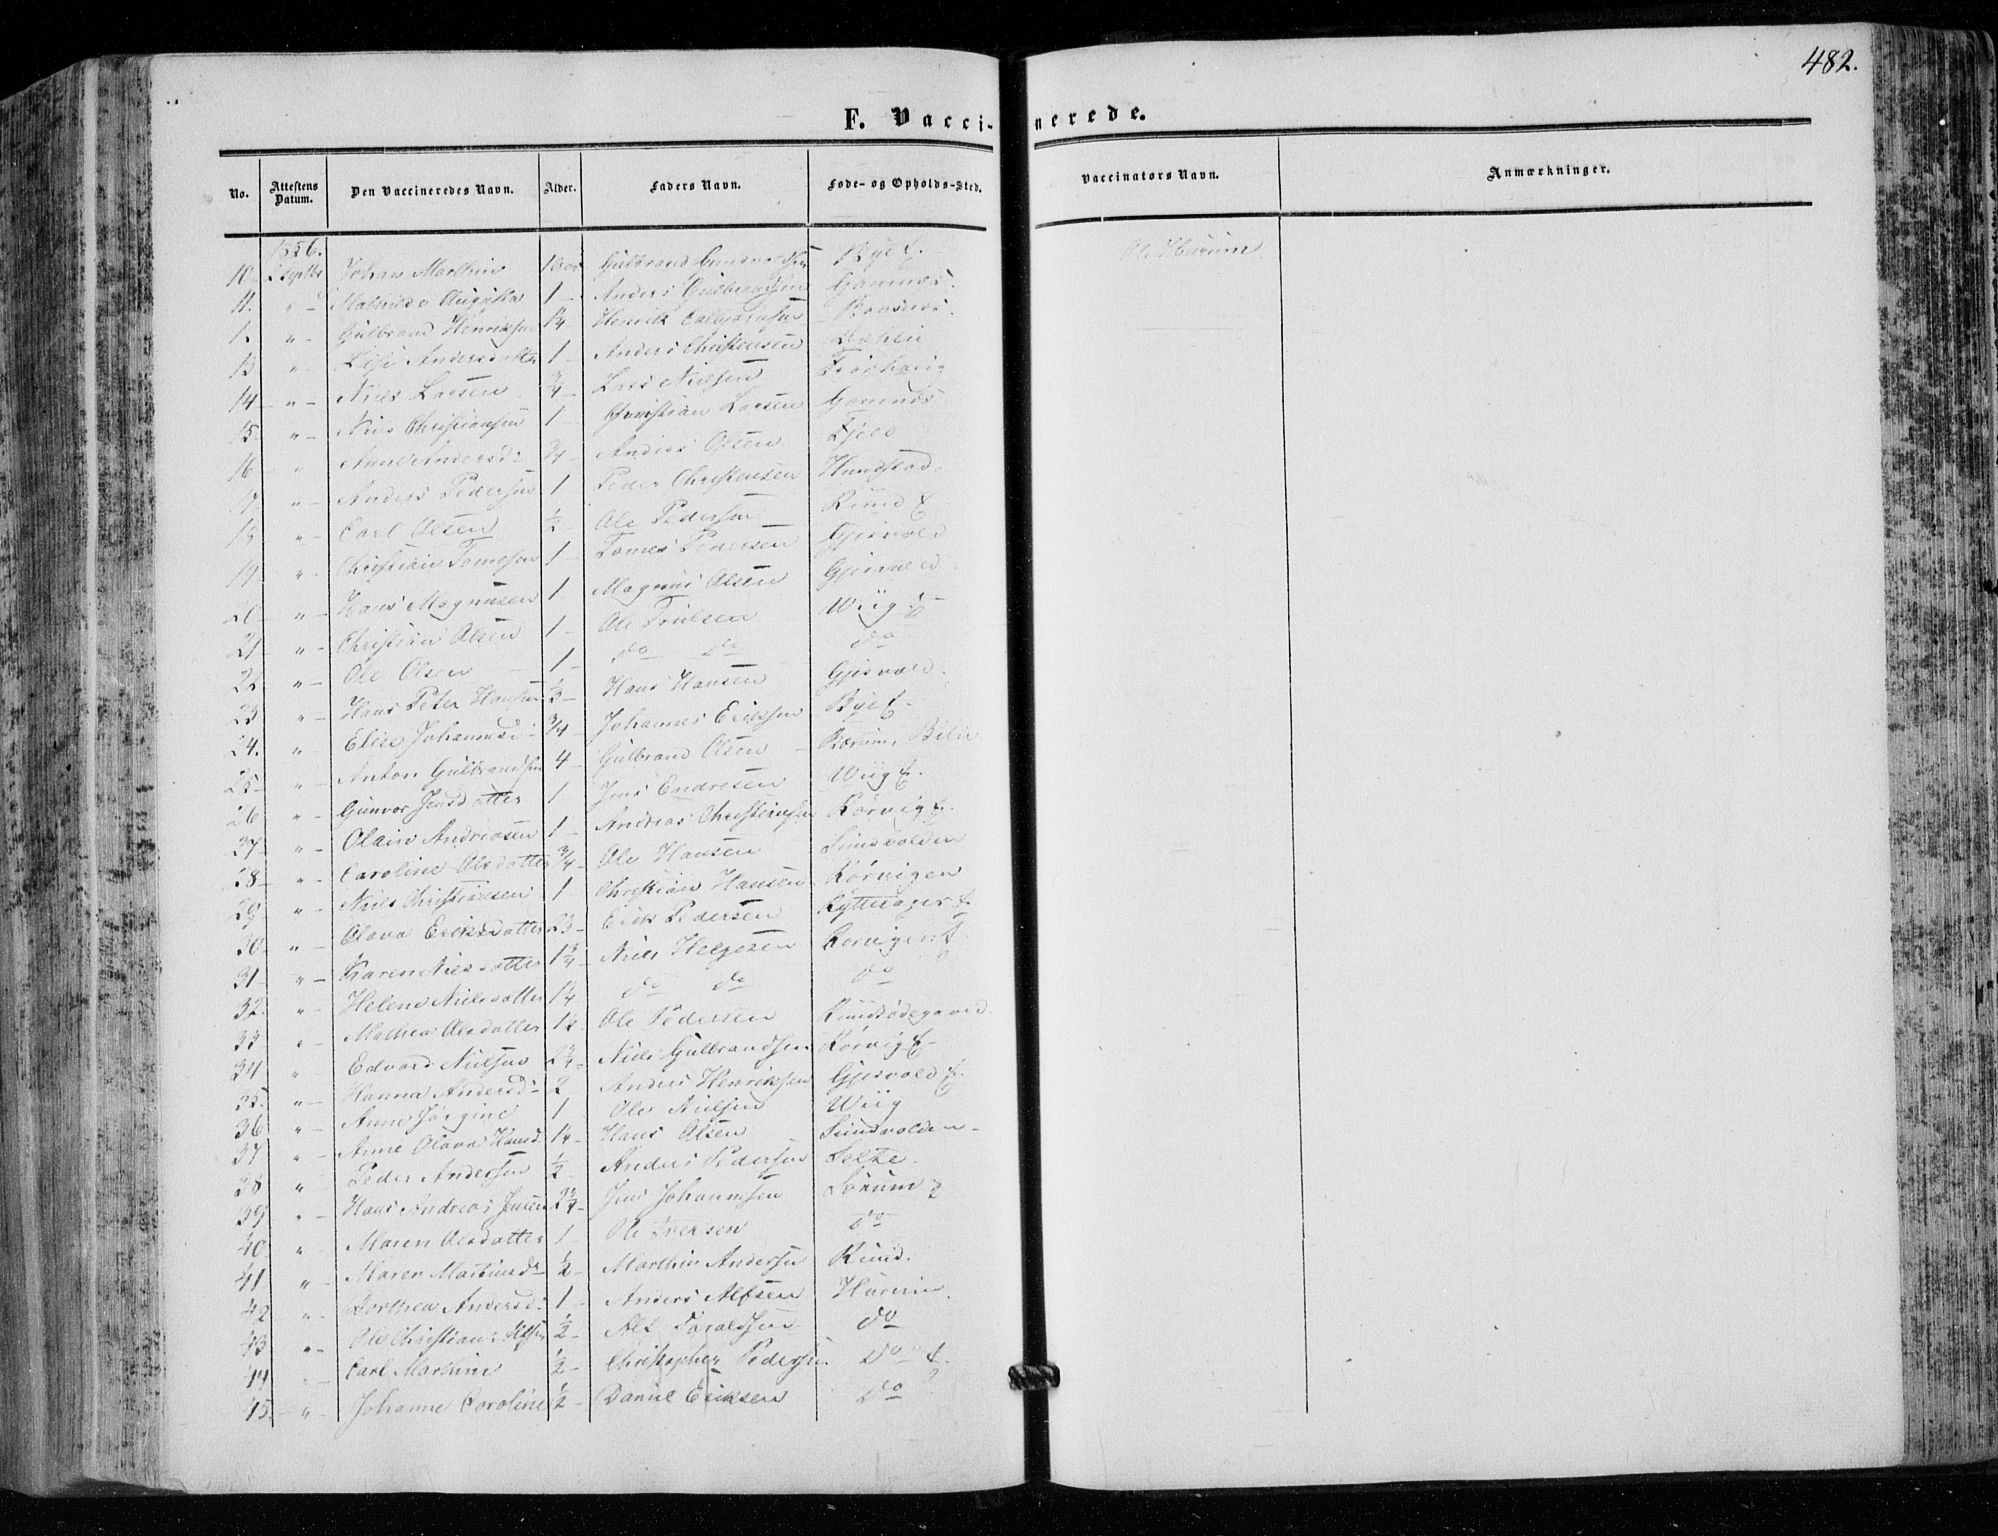 482.
F. Vaccinerede.
No. Attestens Datum. Den Vaccineredes Navn. Alder. Faders Navn. Føde- og Opholds-Sted. Vaccinators Navn. Anmærkninger.
1856.
10. Septbr Johan Marthin Gulbrand Bye f. Ole Hurum
11. " Augusta 1 Anders Gulbrandsen Gomnæs.
" Gulbrand Henriksen 1¼ Henrik Bønsnæs.
13 " Lise Andersdatter 1 Anders Christensen Dæhlie
14 " Niels Larsen ¾ Lars Nielsen
15 " Niels Christiansen 1 Christian Larsen Gomnæs
16 " Anne Andersd: ¾ Anders Olsen Fjeld
17 " Anders Pedersen 1 Peder Christensen Hungstad
18 " Carl Olsen ½ Ole Pedersen Ruud f
19 " Christian Tomesen 1 Tomes Pedersen Gjesvold
20 " Hans Magnusen 1 Magnus Olsen Gjesvold
21 " Christian Olsen 1 Ole Trulsen Wiig f
22 " Ole Olsen 1 do do do
23 " Hans Peter Hansen ½ Hans Hansen Gjesvold.
24. " Elise Johannesd: ¾ Johannes Eriksen Bye f
25 " Anton Gulbrandsen 4 Gulbrand Olsen Bærum,
26 " Gunvor Jensdatter 1 Jens Endresen Wiig f.
27 " Olain Andreasen 1 Andreas Christiansen Rørvig f.
28 " Caroline Olsdatter ¾ Ole Hansen Sundvolden
29 " Niels Christiansen 1 Christian Hansen Rørvigen
30 " Olava Eriksdatter Erik Pedersen Rytterager f.
31 " Karen Nielsdatter 1¾ Niels Helgesen Rørvigen f
32. " Helene Nielsdatter 1¼ do do do
33 " Mathea Olsdatter Ole Pedersen Ruudsødegaard.
34 " Edvard Nielsen 2¾ Niels Gulbrandsen Rørvig f
35. " Hanna Andersd: 2 Anders Henriksen Gjesvold f.
36 " Anne Jørgine 1 Ole Nielsen Wiig
37 " Anne Olava Hansd. 1¼ Hans Olsen Sundvolden
38 " Peder Andersen ½ Anders Pedersen Selte.
39 " Hans Andreas Jensen 2¾ Jens Johannesen Sørum
40 " Maren Olsdatter 1 Ole Iversen do
41 " Maren Martinsd: ½ Marthin Andersen Ruud.
42 " Dorthea Andersd: 1 Anders Alfsen Hurum.
43 " Ole Christian ½ Alf Toraldsen do
44 " Carl Marthin ½ Christopher Pedersen do f.
45. " Johanne Caroline ½ Daniel Eriksen do